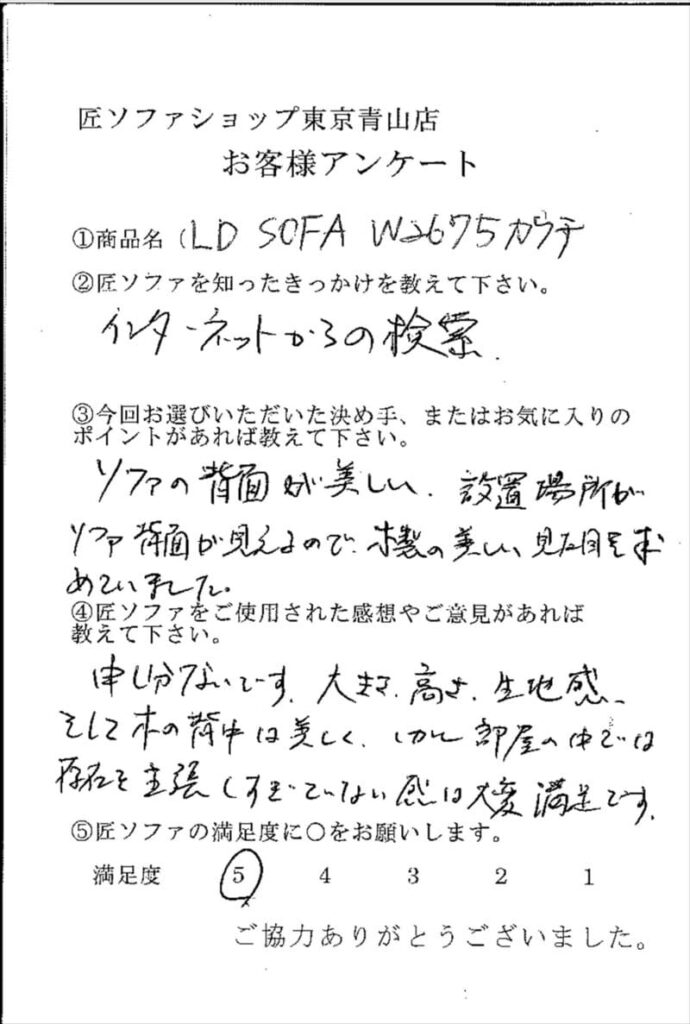 匠ソファショップ東京青山店
お客様アンケート
①商品名（LD SOFA W2675カウチ
②匠ソファを知ったきっかけを教えて下さい。
インターネットからの検索.
③今回お選びいただいた決め手、またはお気に入りの
ポイントがあれば教えて下さい。
ソファの背面が美しい. 設置場所が
ソファ背面が見えるので、木製の美しい見た目を求
めていました。
④匠ソファをご使用された感想やご意見があれば
教えて下さい。
申し分ないです. 大きさ. 高さ. 生地感、
そして木の背中は美しく. しかし部屋の中では
存在を主張しすぎていない感は大変満足です.
⑤匠ソファの満足度に○をお願いします。
満足度 5 4 3 2 1
ご協力ありがとうございました。